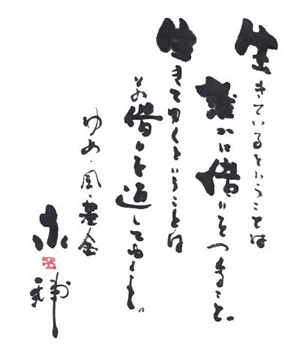 生きているということは
誰かに借りをつくること。
生きてゆくということは
その借りを返してゆくこと。
ゆめ・風・基金
永六輔